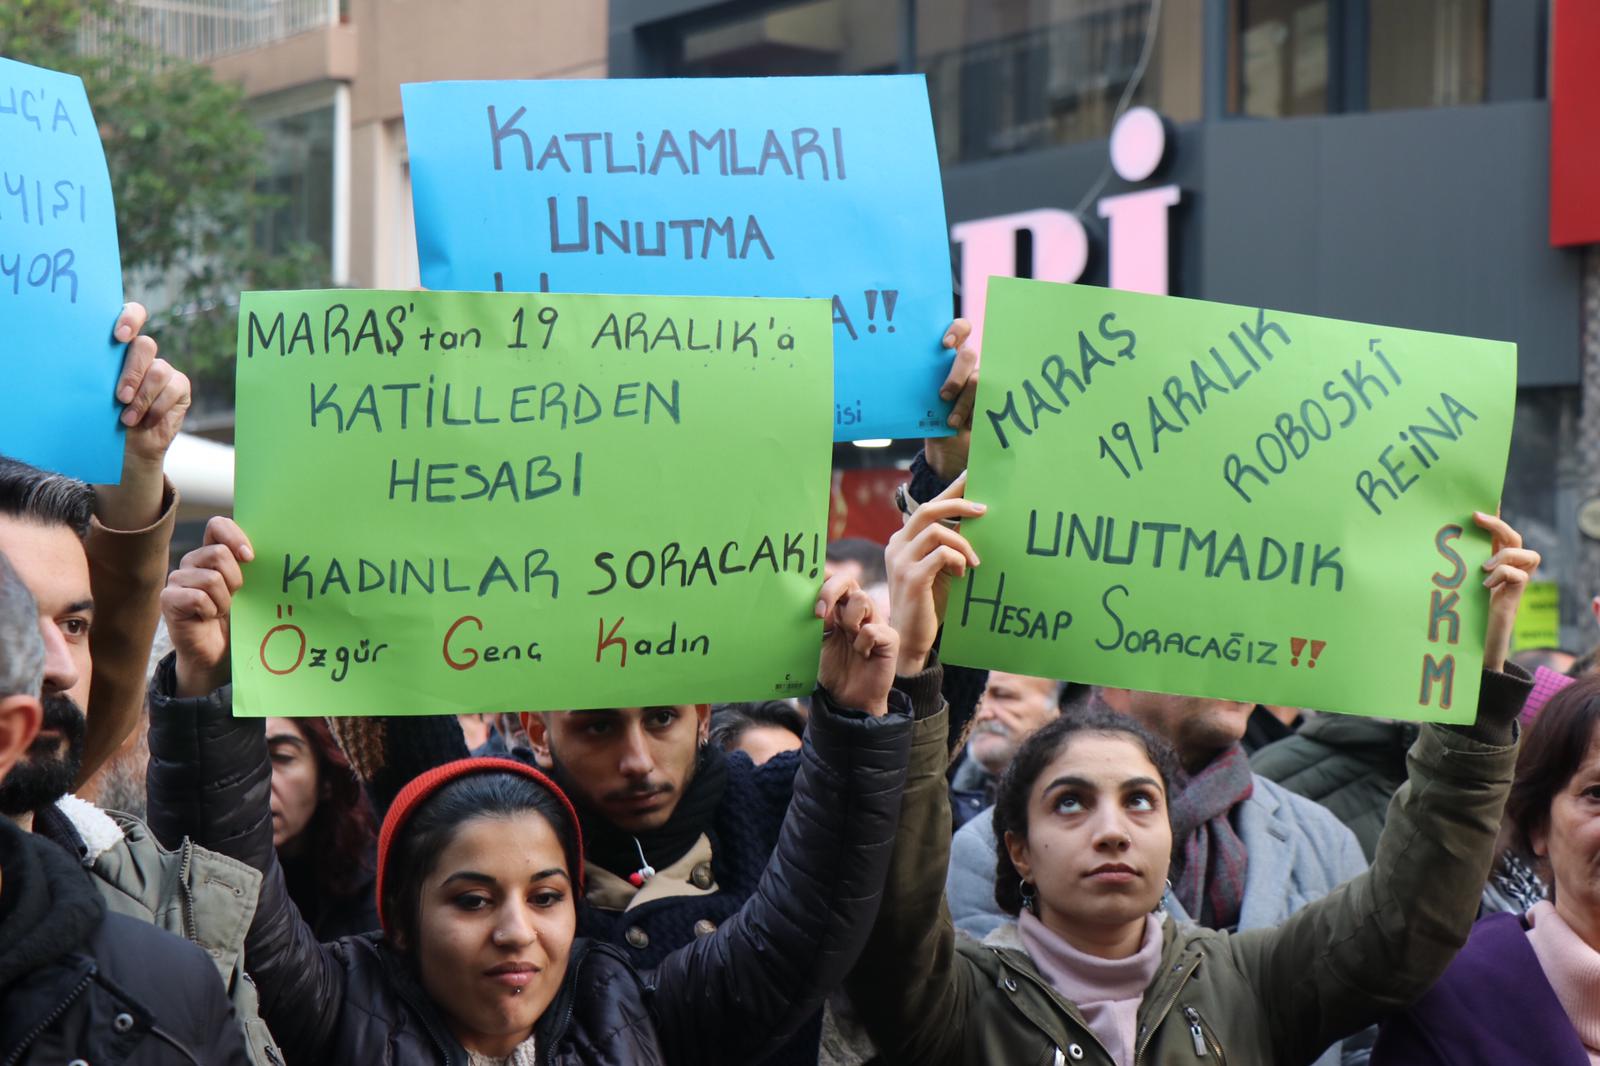 UÇ'A
YISI
YOR
KATLİAMLARI
UNUTMA
A!!
isi
Pi
MARAŞ'tan 19 ARALIK'a
KATİLLERDEN
HESABI
KADINLAR SORACAK!
Özgür Genç Kadın
MARAŞ
19 ARALIK
ROBOSKÎ
REİNA
UNUTMADIK
HESAP SORACAĞIZ!!
SKM